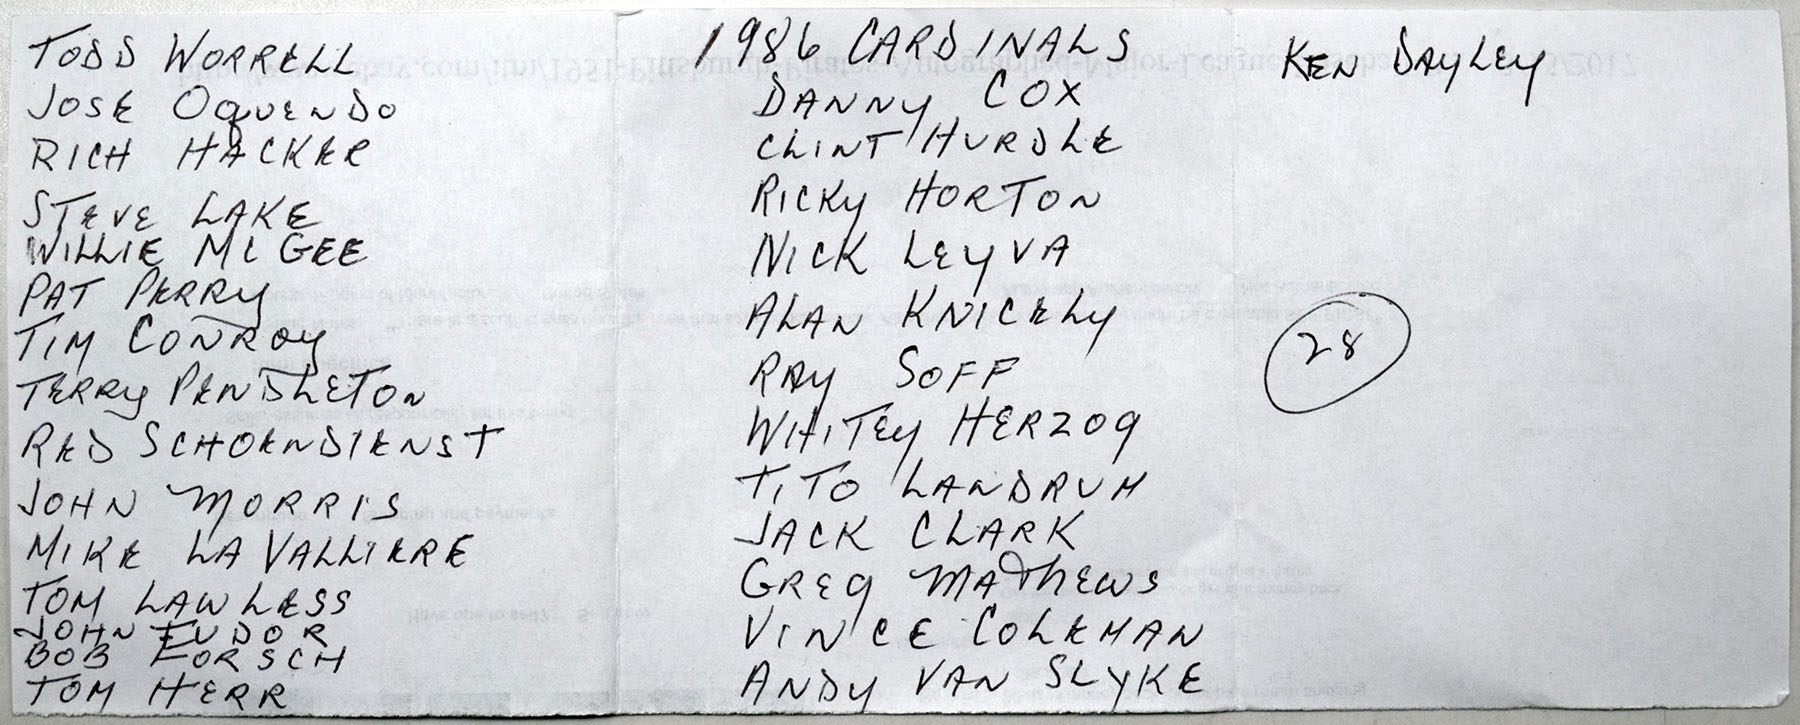 TODD WORRELL
JOSE OQUENDO
RICH HACKER
STEVE LAKE
WILLIE MC GEE
PAT PERRY
TIM CONROY
TERRY PENDLETON
RED SCHOENDIENST
JOHN MORRIS
MIKE LA VALLIERE
TOM LAWLESS
JOHN TUDOR
BOB FORSCH
TOM HERR
1986 CARDINALS
DANNY COX
CLINT HURDLE
RICKY HORTON
NICK LEYVA
ALAN KNICELY
RAY SOFF
WHITEY HERZOG
TITO LANDRUM
JACK CLARK
GREG MATHEWS
VINCE COLEMAN
ANDY VAN SLYKE
KEN DAYLEY
28